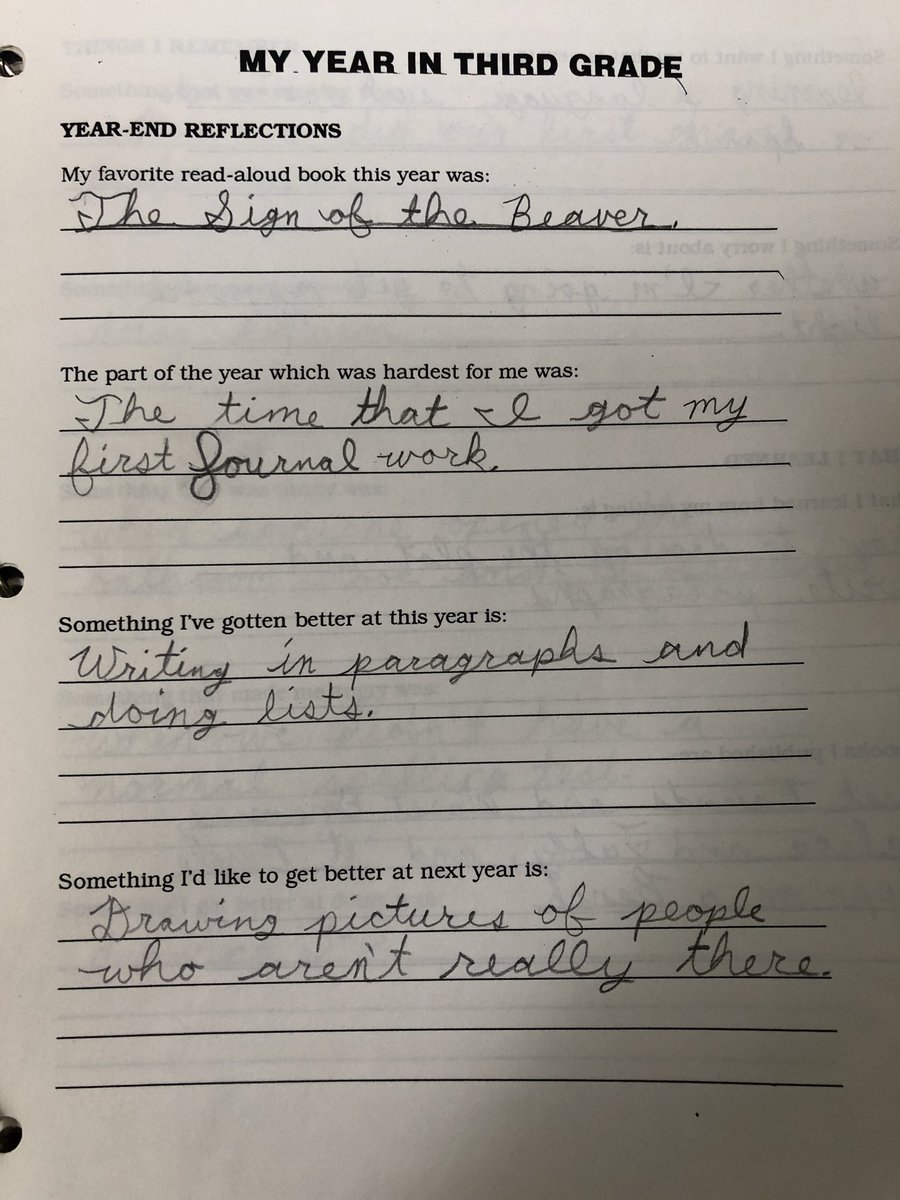 MY YEAR IN THIRD GRADE
YEAR-END REFLECTIONS
My favorite read-aloud book this year was:
The Sign of the Beaver.
The part of the year which was hardest for me was:
The time that I got my
first Journal work.
Something I've gotten better at this year is:
Writing in paragraphs and
doing lists.
Something I'd like to get better at next year is:
Drawing pictures of people
who aren't really there.